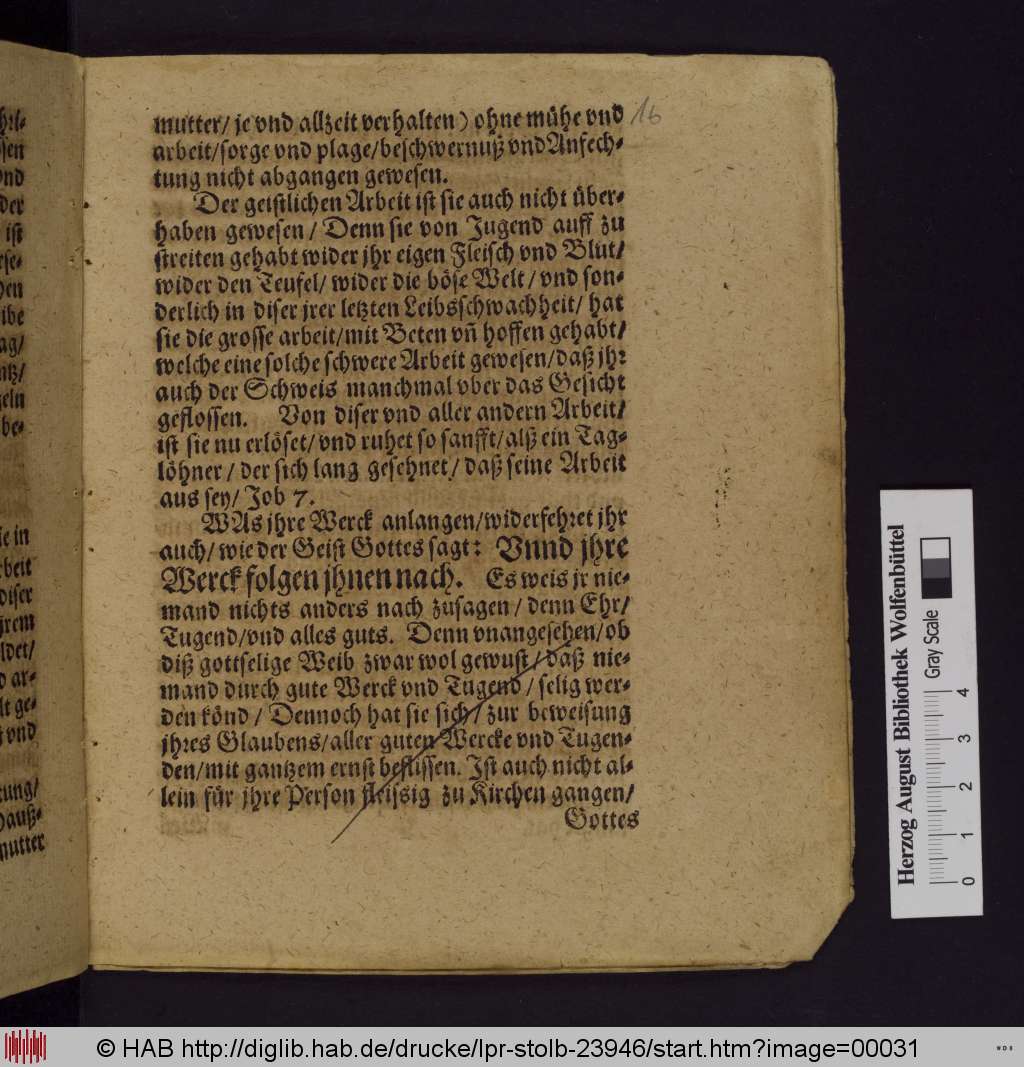 mutter/ je vnd allzeit verhalten) ohne mühe vnd
16
arbeit/sorge vnd plage/beschwernuß vnd Anfech-
tung nicht abgangen gewesen.
Der geistlichen Arbeit ist sie auch nicht über-
haben gewesen/ Denn sie von Jugend auff zu
streiten gehabt wider jhr eigen Fleisch vnd Blut/
wider den Teufel/ wider die böse Welt/ vnd son-
derlich in diser jrer letzten Leibsschwachheit/ hat
sie die grosse arbeit/mit Beten vñ hoffen gehabt/
welche eine solche schwere Arbeit gewesen/daß jhr
auch der Schweis manchmal vber das Gesicht
geflossen. Von diser vnd aller andern Arbeit/
ist sie nu erlöset/ vnd ruhet so sanfft/alß ein Tag-
löhner/ der sich lang gesehnet/ daß seine Arbeit
aus sey/ Job 7.
WAs jhre Werck anlangen/widerfehret jhr
auch/ wie der Geist Gottes sagt: Vnnd jhre
Werck folgen jhnen nach. Es weis jr nie-
mand nichts anders nach zusagen/ denn Ehr/
Tugend/vnd alles guts. Denn vnangesehen/ob
diß gottselige Weib zwar wol gewust/daß nie-
mand durch gute Werck vnd Tugend/ selig wer-
den könd/ Dennoch hat sie sich/ zur beweisung
jhres Glaubens/aller guten Wercke vnd Tugen-
den/mit gantzem ernst beflissen. Ist auch nicht al-
lein für jhre Person fleissig zu Kirchen gangen/
Gottes
ssen
vnd
der
ist
ese-
hen
ibe
ag/
ntz/
zeln
be-
sie in
rbeit
diser
jrem
ldet/
d ar-
lt ge-
vnd
tung/
Hauß-
mutter
Herzog August Bibliothek Wolfenbüttel
Gray Scale
0 1 2 3 4
© HAB http://diglib.hab.de/drucke/lpr-stolb-23946/start.htm?image=00031